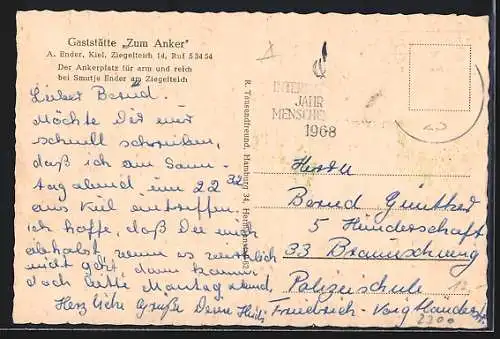 Gaststätte „Zum Anker"
A. Ender, Kiel, Ziegelteich 14, Ruf 5 34 54
Der Ankerplatz für arm und reich
bei Smutje Ender am Ziegelteich
Lieber Bernd.
Möchte Dir nur
schnell schreiben,
daß ich am Sonn-
tagabend um 22 32
aus Kiel eintreffe.
ich hoffe, daß Du mich
abholst, wenn es
nicht geht, dann komme
doch bitte Montagabend,
Herzliche Grüße Deine Heidi
R. Tausendfreund, Hamburg 34,
JAHR
MENSCHEN
1968
Herrn
Bernd Günther
5 Hundertschaft
33 Braunschweig
Polizeischule
Friedrich-Voigtländerstr.
12,-